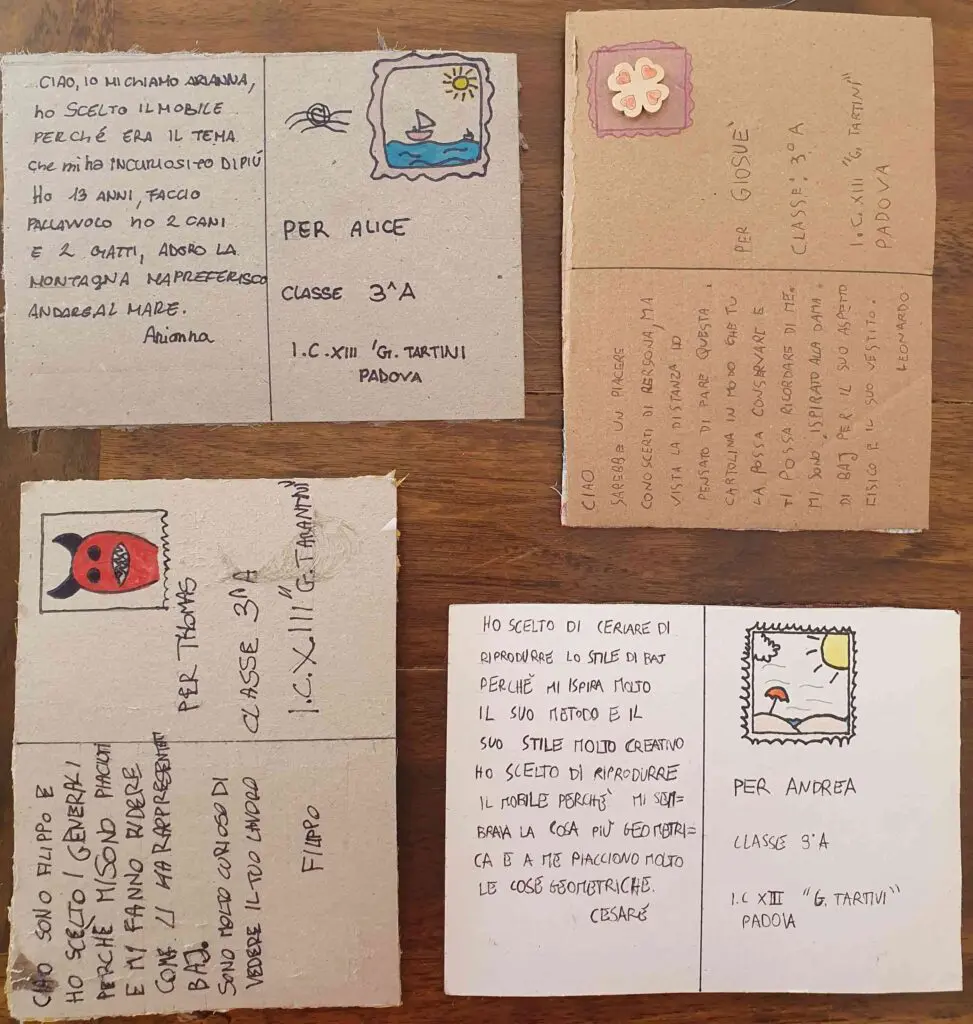 CIAO, IO MI CHIAMO ARIANNA,
ho SCELTO IL MOBILE
PERCHÉ ERA IL TEMA
che mi ha INCURIOSITO DI PIÚ
Ho 13 ANNI, FACCIO
PALLAVVOLO ho 2 CANI
E 2 GATTI, ADORO LA
MONTAGNA MA PREFERISCO
ANDARE AL MARE.
Arianna
PER ALICE
CLASSE 3^A
I.C. XIII "G. TARTINI
PADOVA
PER GIOSUE'
CLASSE: 3°A
I.C. XIII "G. TARTINI"
PADOVA
CIAO
SAREBBE UN PIACERE
CONOSCERTI DI PERSONA, MA
VISTA LA DISTANZA HO
PENSATO DI FARE QUESTA
CARTOLINA IN MODO CHE TU
LA POSSA CONSERVARE E
TI POSSA RICORDARE DI ME.
MI SONO ISPIRATO ALLA DAMA
DI BAJ PER IL SUO ASPETTO
FISICO E IL SUO VESTITO.
LEONARDO
PER THOMAS
CLASSE 3^A
I.C. XIII "G. TARANTINI"
CIAO SONO FILIPPO E
HO SCELTO I GENERALI
PERCHÈ MI SONO PIACIUTI
E MI FANNO RIDERE
COME LI HA RAPPRESENTATI
BAJ.
SONO MOLTO CURIOSO DI
VEDERE IL TUO LAVOLO
FILIPPO
HO SCELTO DI CERIARE DI
RIPRODURRE LO STILE DI BAJ
PERCHÈ MI ISPIRA MOLTO
IL SUO METODO E IL
SUO STILE MOLTO CREATIVO
HO SCELTO DI RIPRODURRE
IL MOBILE PERCHÈ MI SEM=
BRAVA LA COSA PIÙ GEOMETRI=
CA E A ME PIACCIONO MOLTO
LE COSE GEOMETRICHE.
CESARE
PER ANDREA
CLASSE 3°A
I.C XIII "G. TARTIVI"
PADOVA